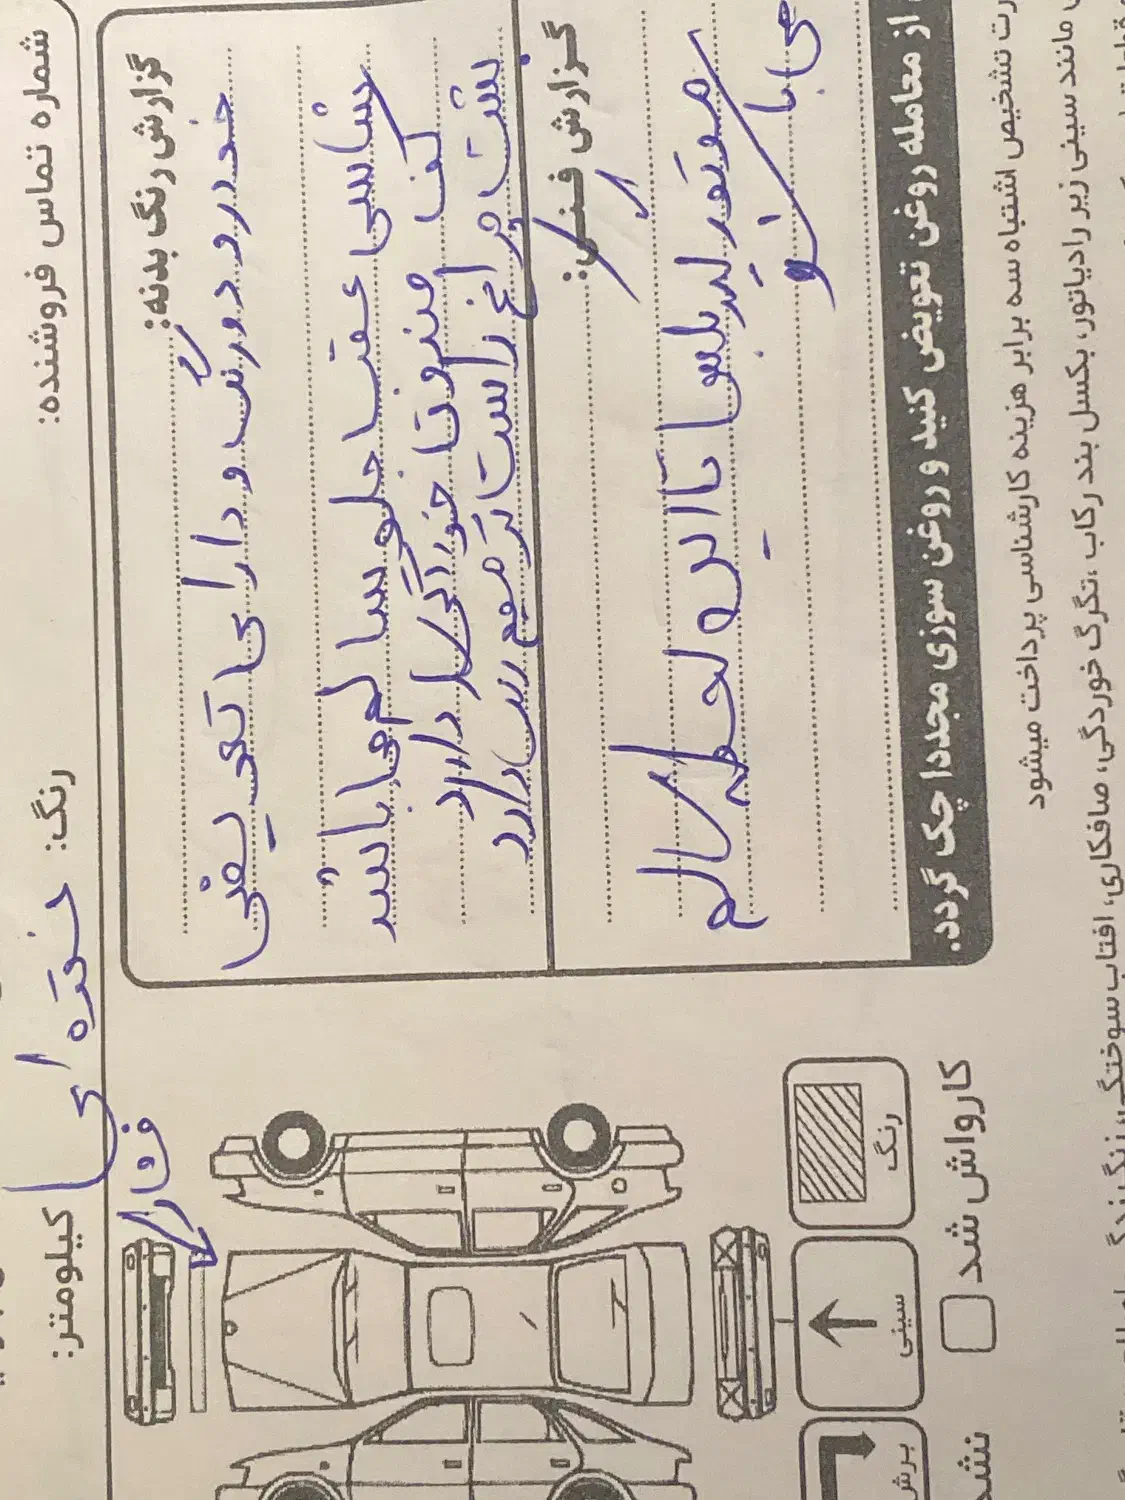 شماره تماس فروشنده:
رنگ: نقره ای
کیلومتر:
گزارش رنگ بدنه:
خودرو دورنگ و دارای تعویضی
شاسی عقب جلو سالم میباشد
کف صندوق تا خوردگی دارد
پشت چراغ راست ترمیم دارد
گزارش فنی:
موتور گیربکس تا این لحظه سالم
می باشد
از معامله روغن تعویض کنید و روغن سوزی مجددا چک گردد.
رت تشخیص اشتباه سه برابر هزینه کارشناسی پرداخت میشود
مانند سینی زیر رادیاتور، بکسل بند رکاب ،تگرگ خوردگی، صافکاری، افتاب سوختگی
رنگ
سینی
برش
کارواش شد
نشد